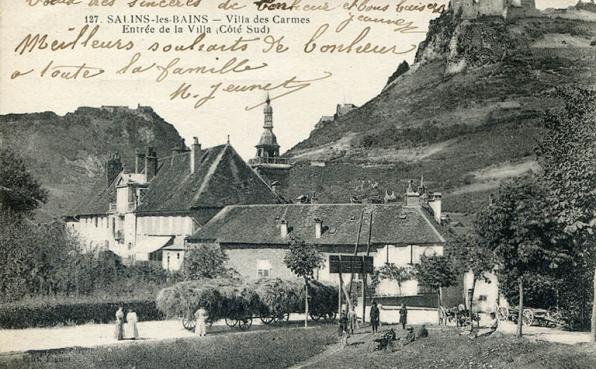 127. SALINS-les-BAINS - Villa des Carmes
Entrée de la Villa (Côté Sud)
des sincères de bonheur
Meilleurs souhaits de bonheur
à toute la famille
M. Jeunet